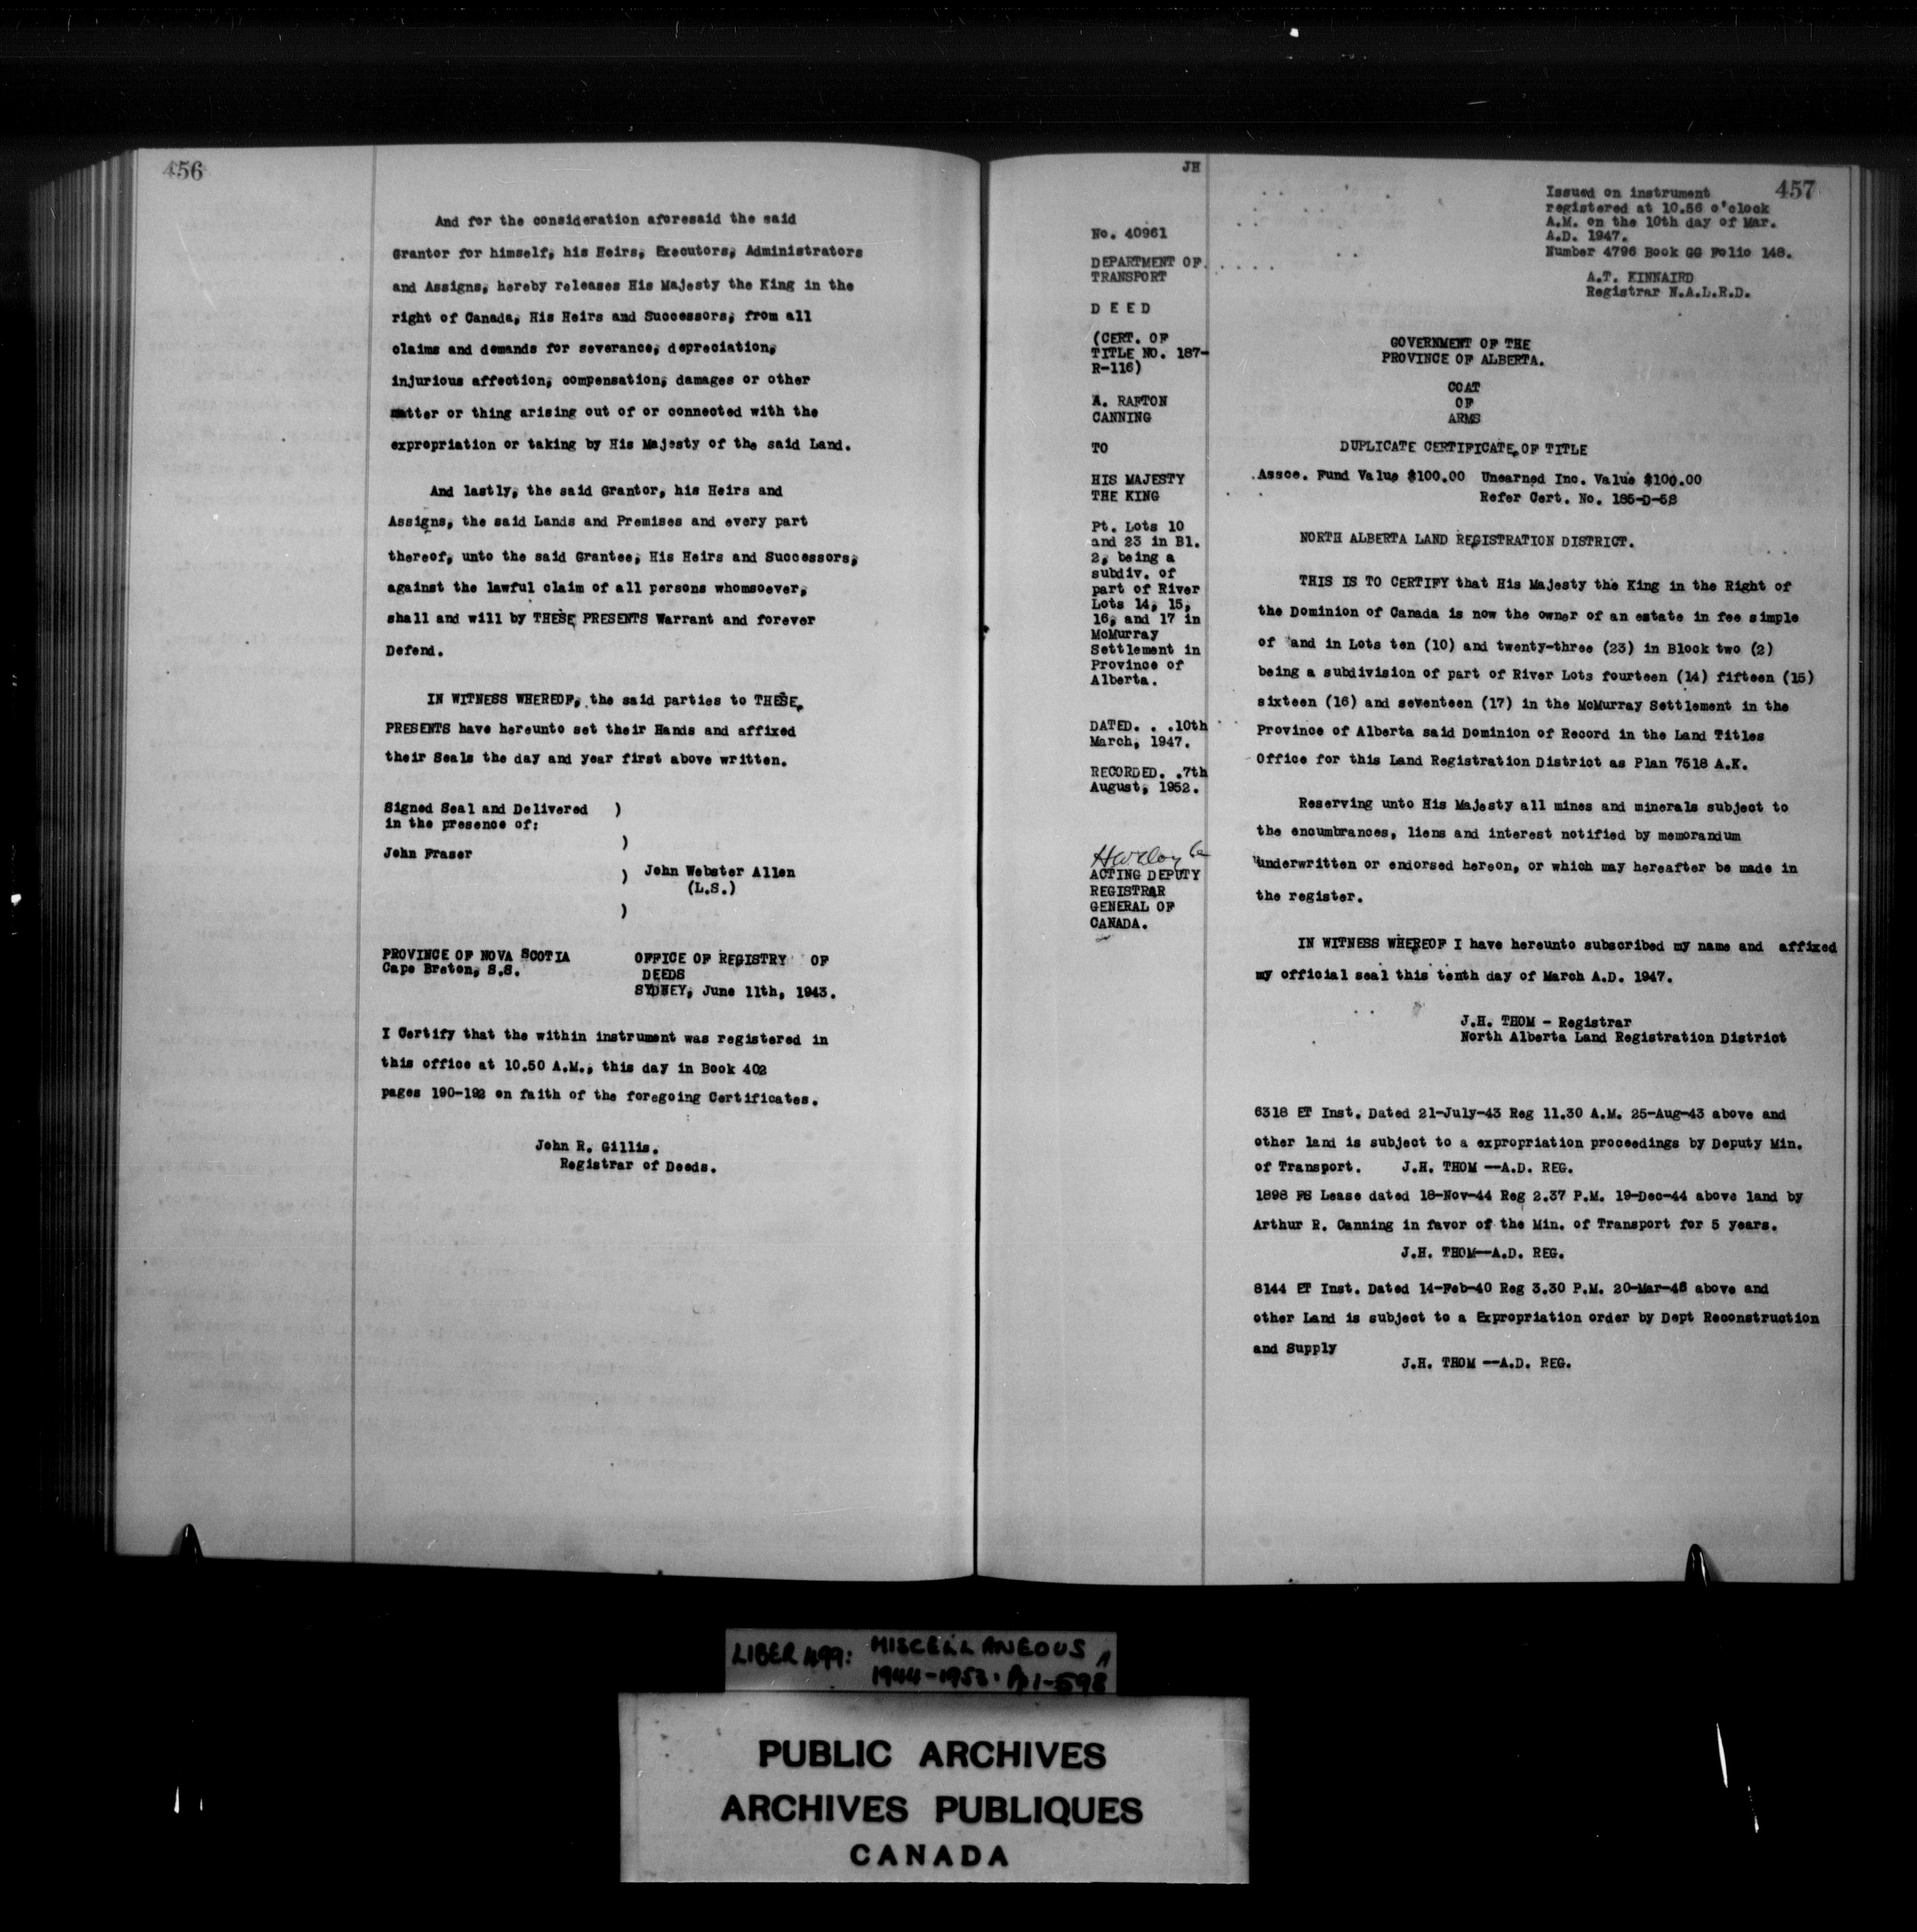 456
And for the consideration aforesaid the said
Grantor for himself, his Heirs, Executors, Administrators
and Assigns, hereby releases His Majesty the King in the
right of Canada, His Heirs and Successors, from all
claims and demands for severance, depreciation,
injurious affection, compensation, damages or other
matter or thing arising out of or connected with the
expropriation or taking by His Majesty of the said Land.
And lastly, the said Grantor, his Heirs and
Assigns, the said Lands and Premises and every part
thereof, unto the said Grantee, His Heirs and Successors,
against the lawful claim of all persons whomsoever,
shall and will by THESE PRESENTS Warrant and forever
Defend.
IN WITNESS WHEREOF, the said parties to THESE
PRESENTS have hereunto set their Hands and affixed
their Seals the day and year first above written.
Signed Seal and Delivered )
in the presence of:
)
John Fraser
) John Webster Allen
(L.S.)
)
PROVINCE OF NOVA SCOTIA
Cape Breton, S.S.
OFFICE OF REGISTRY OF
DEEDS
SYDNEY, June 11th, 1943.
I Certify that the within instrument was registered in
this office at 10.50 A.M., this day in Book 402
pages 190-192 on faith of the foregoing Certificates.
John R. Gillis.
Registrar of Deeds.
JH
457
No. 40961
DEPARTMENT OF.....
TRANSPORT
D E E D
(CERT. OF
TITLE NO. 187-
R-116)
A. RAFTON
CANNING
TO
HIS MAJESTY
THE KING
Pt. Lots 10
and 23 in Bl.
2, being a
subdiv. of
part of River
Lots 14, 15,
16, and 17 in
McMurray
Settlement in
Province of
Alberta.
DATED. . .10th
March, 1947.
RECORDED. .7th
August, 1952.
ACTING DEPUTY
REGISTRAR
GENERAL OF
CANADA.
Issued on instrument
registered at 10.56 o'clock
A.M. on the 10th day of Mar.
A.D. 1947.
Number 4796 Book GG Folio 148.
A.T. KINNAIRD
Registrar N.A.L.R.D.
GOVERNMENT OF THE
PROVINCE OF ALBERTA.
COAT
OF
ARMS
DUPLICATE CERTIFICATE OF TITLE
Assce. Fund Value $100.00 Unearned Inc. Value $100.00
Refer Cert. No. 185-D-58
NORTH ALBERTA LAND REGISTRATION DISTRICT.
THIS IS TO CERTIFY that His Majesty the King in the Right of
the Dominion of Canada is now the owner of an estate in fee simple
of and in Lots ten (10) and twenty-three (23) in Block two (2)
being a subdivision of part of River Lots fourteen (14) fifteen (15)
sixteen (16) and seventeen (17) in the McMurray Settlement in the
Province of Alberta said Dominion of Record in the Land Titles
Office for this Land Registration District as Plan 7518 A.K.
Reserving unto His Majesty all mines and minerals subject to
the encumbrances, liens and interest notified by memorandum
underwritten or endorsed hereon, or which may hereafter be made in
the register.
IN WITNESS WHEREOF I have hereunto subscribed my name and affixed
my official seal this tenth day of March A.D. 1947.
J.H. THOM - Registrar
North Alberta Land Registration District
6318 ET Inst. Dated 21-July-43 Reg 11.30 A.M. 25-Aug-43 above and
other land is subject to a expropriation proceedings by Deputy Min.
of Transport. J.H. THOM --A.D. REG.
1898 FS Lease dated 18-Nov-44 Reg 2.37 P.M. 19-Dec-44 above land by
Arthur R. Canning in favor of the Min. of Transport for 5 years.
J.H. THOM--A.D. REG.
8144 ET Inst. Dated 14-Feb-40 Reg 3.30 P.M. 20-Mar-46 above and
other Land is subject to a Expropriation order by Dept Reconstruction
and Supply
J.H. THOM --A.D. REG.
LIBER 499: MISCELLANEOUS
1944-1953. Pp 1-598
PUBLIC ARCHIVES
ARCHIVES PUBLIQUES
CANADA